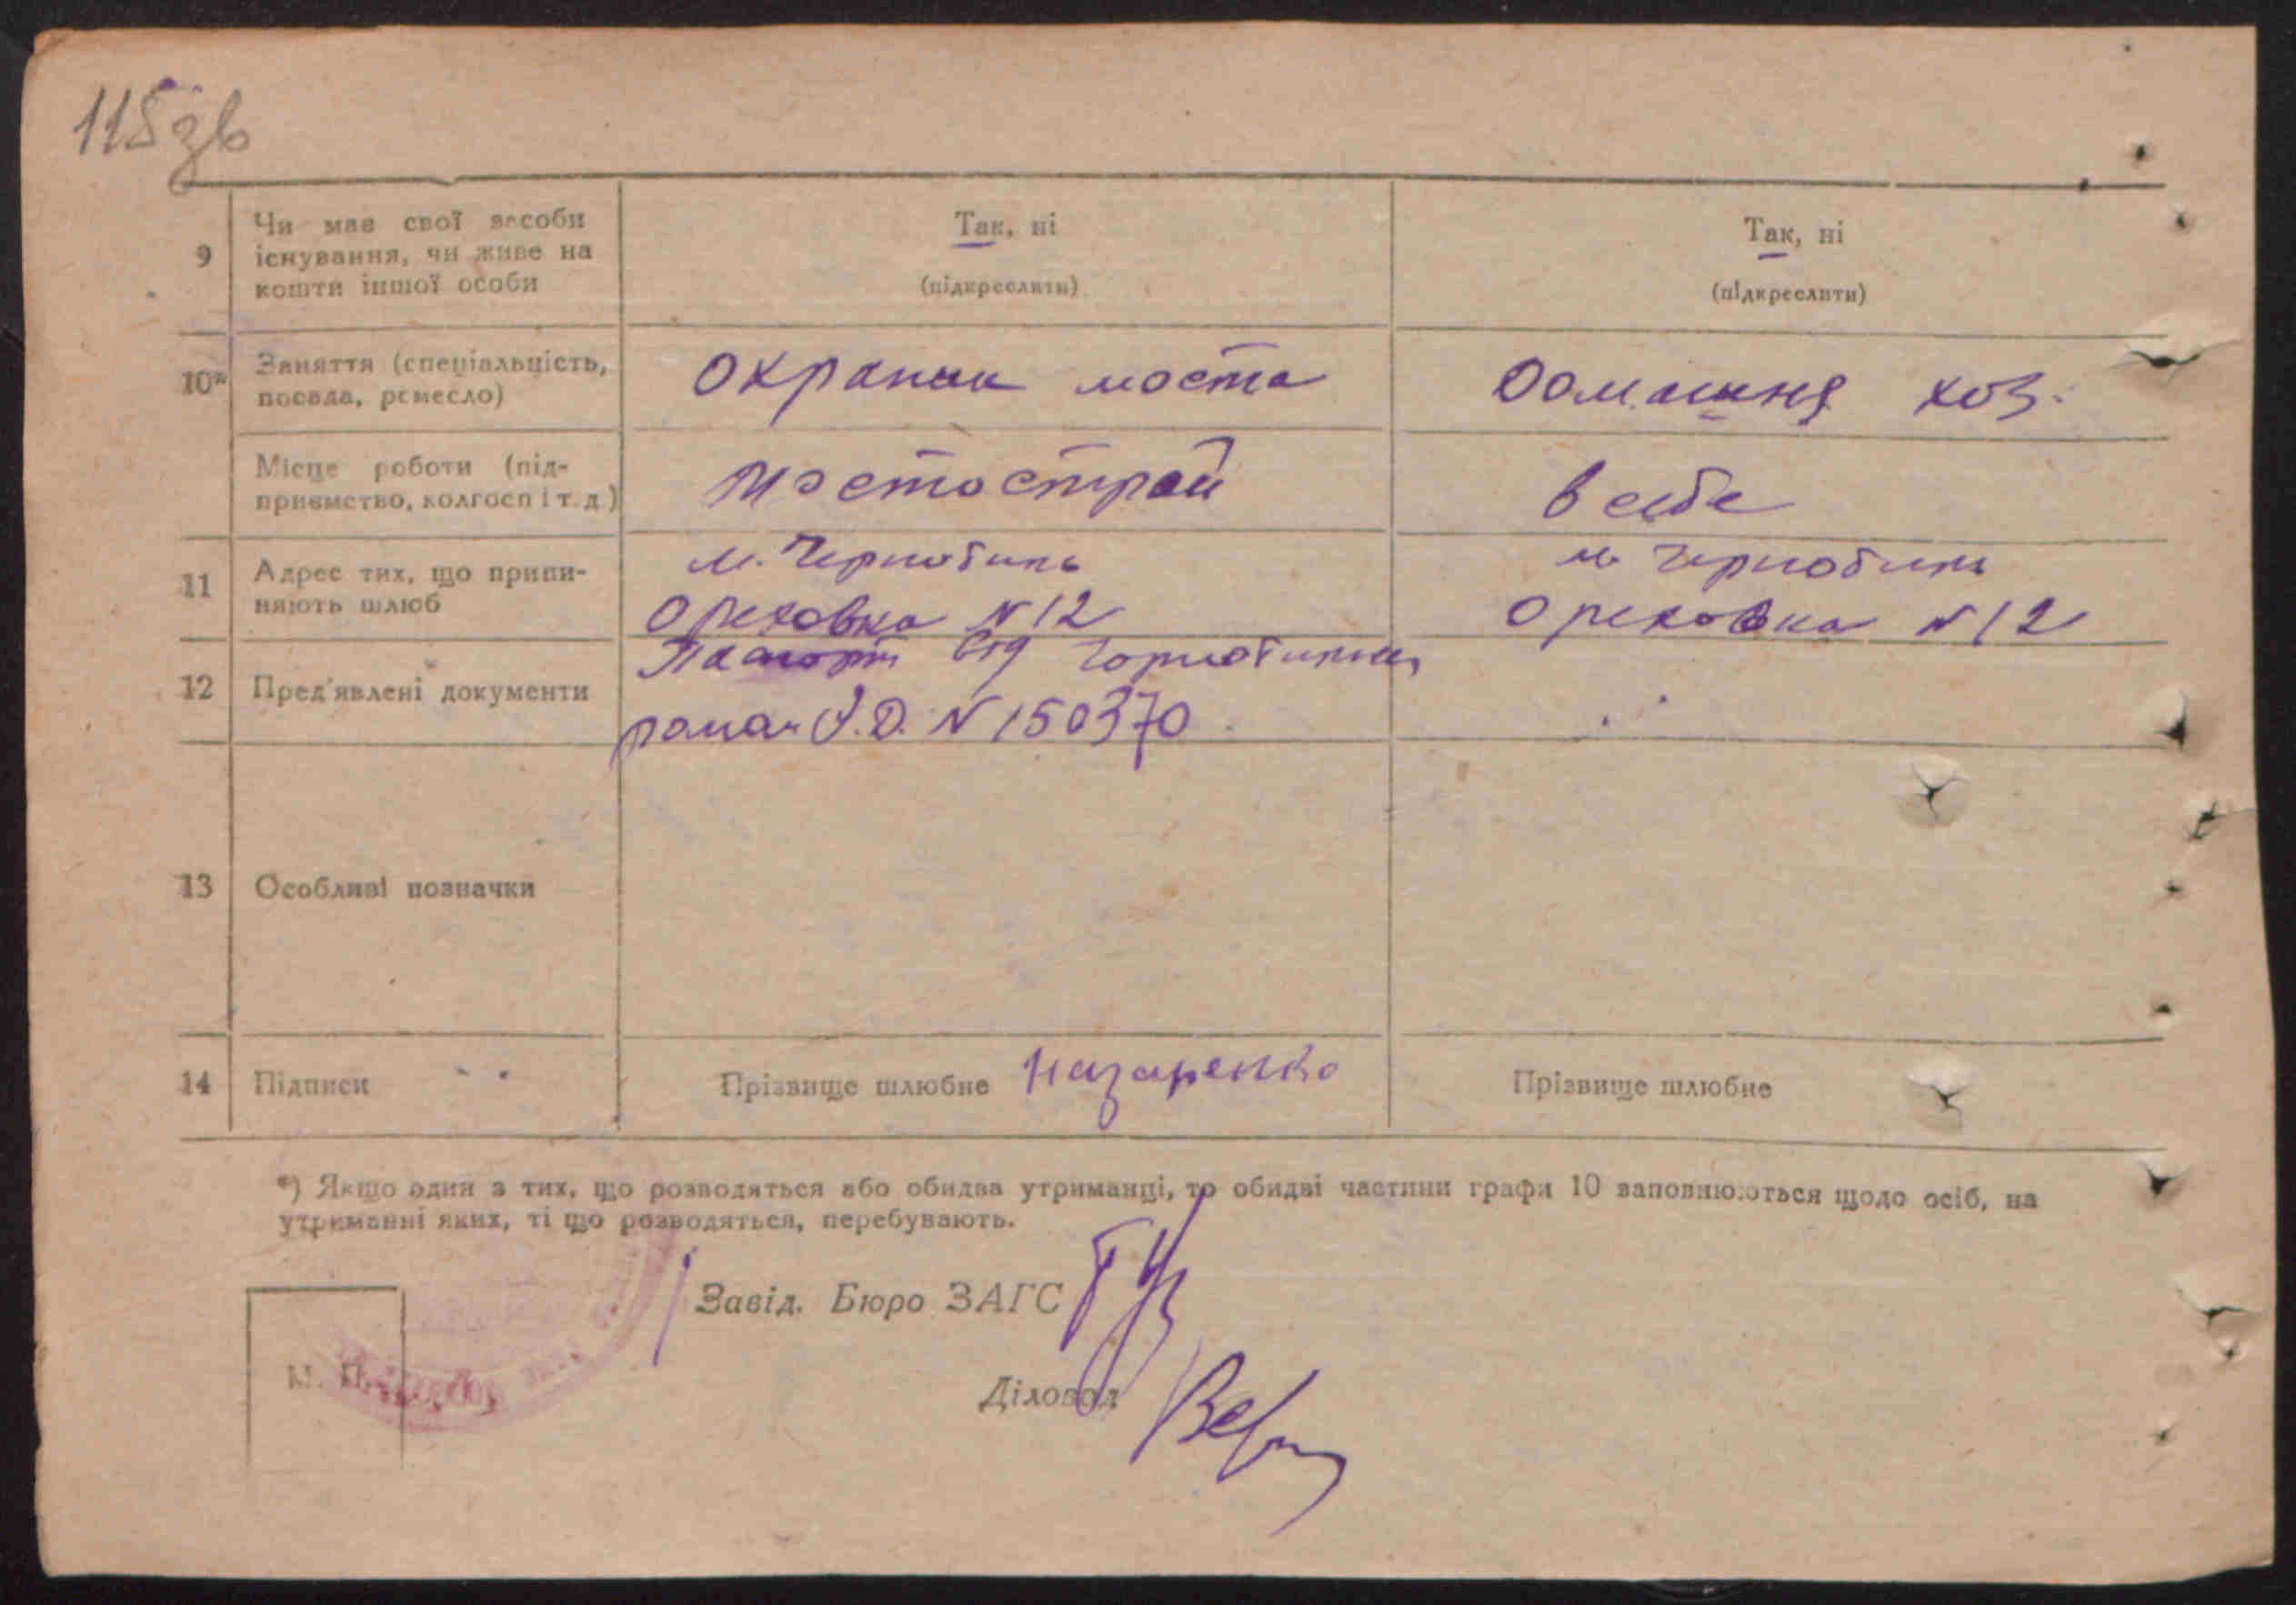 118 зв
9
Чи має свої засоби
існування, чи живе на
кошти іншої особи
Так, ні
(підкреслити)
Так, ні
(підкреслити)
10*
Заняття (спеціальність,
посада, ремесло)
Охраник моста
Домашня хоз.
Місце роботи (під-
приємство, колгосп і т. д.)
Мостострой
в себе
11
Адрес тих, що припи-
няють шлюб
м. Чернобиль
Ореховка N 12
м. Чернобиль
Ореховка N 12
12
Пред'явлені документи
Паспорт від
N 150370
13
Особливі позначки
14
Підписи
Прізвище шлюбне Назаренко
Прізвище шлюбне
*) Якщо один з тих, що розводяться або обидва утриманці, то обидві частини графи 10 заповнюються щодо осіб, на
утриманні яких, ті що розводяться, перебувають.
Завід. Бюро ЗАГС
М. П.
Діловод